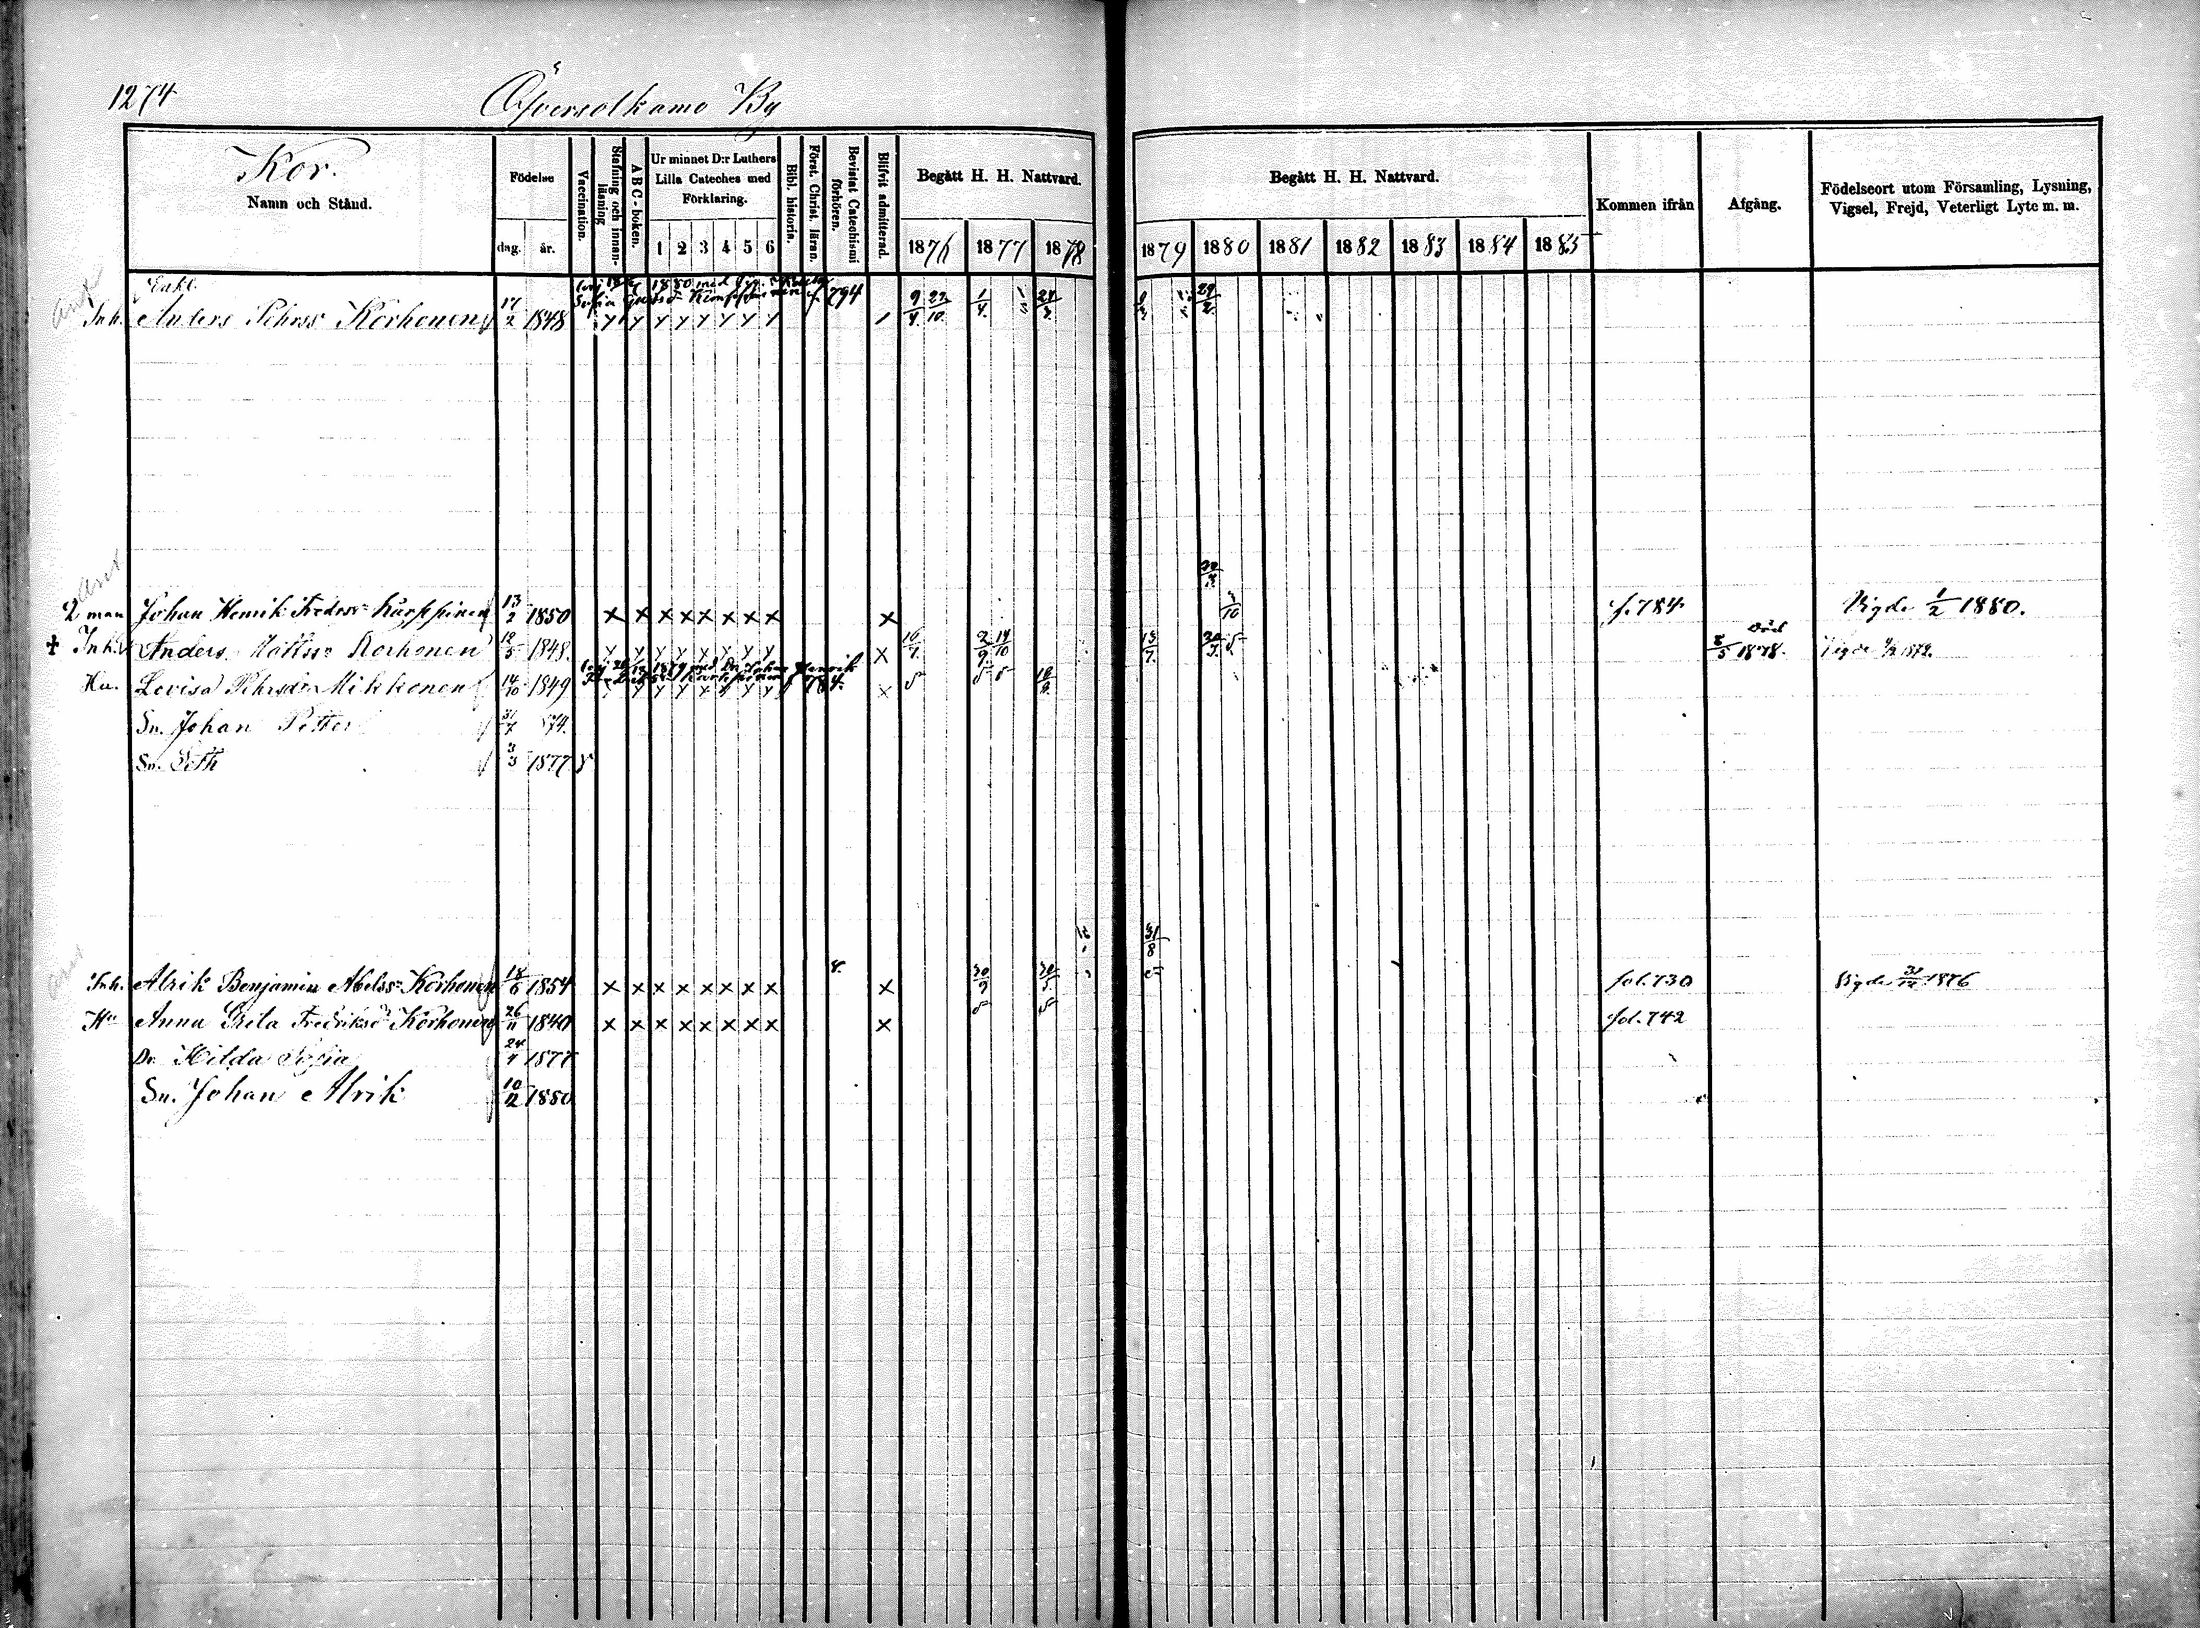 1274
Öfversolkamo By
Kor.
Namn och Stånd.
Födelse
dag. år.
Vaccination.
Stafning och innanläsning
ABC-boken.
Ur minnet D:r Luthers Lilla Cateches med Förklaring.
1 2 3 4 5 6
Bibl. historia.
Först. Christ. läran.
Bevistat Catechismi förhören.
Blifvit admitterad.
Begått H. H. Nattvard.
1876 1877 1878
Begått H. H. Nattvard.
1879 1880 1881 1882 1883 1884 1885
Kommen ifrån
Afgång.
Födelseort utom Församling, Lysning, Vigsel, Frejd, Veterligt Lyte m. m.
Enkl.
1880 med
Sofia f. 794
Inh. Anders Pehrss Korhonen 17/2 1848 9/4 22/10 1/4
29/2
2 man Johan Henrik Fredrss Karppinen 13/2 1850 × × × × × × × × × f. 784 Vigde 1/2 1880.
Död
† Inh. Anders Mattss Korhonen 1848. × 2/9 14/10 13/7 8/5 1878. Vigde 1872.
1879 med Johan Henrik 784.
Hu. Lovisa Pehrsdr Mikkonen 14/10 1849 ×
Sn. Johan Petter 31/7 74.
Sn. Seth 3/3 1877
31/8
Inh. Alrik Benjamin Abelss Korhonen 18/6 1854 × × × × × × × × × 30/9 30/5 fol. 730 Vigde 31/12 1876
Hu Anna Greta Fredriksd Korhonen 26/11 1840 × × × × × × × × × fol. 742
Dr Hilda Sofia 24/4 1877
Sn. Johan Alrik 10/12 1880